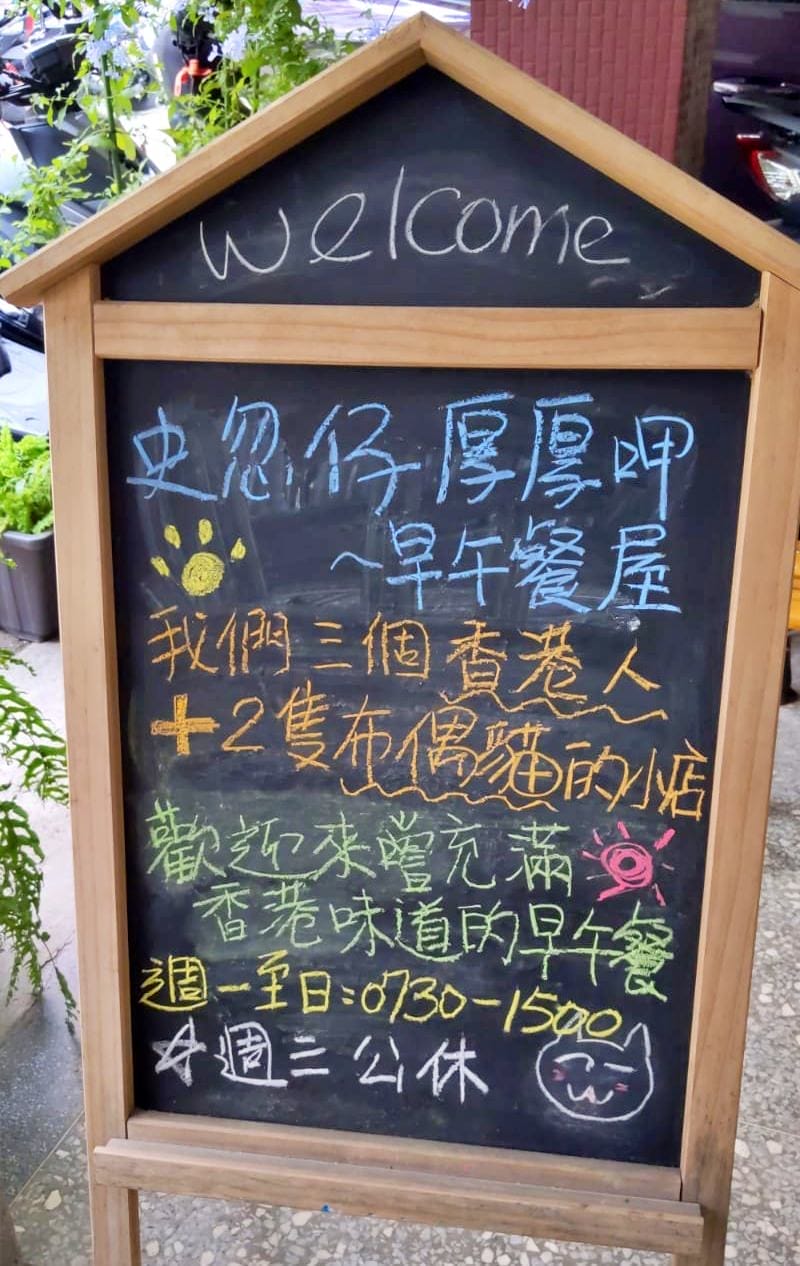 Welcome
史忽仔厚厚呷
~早午餐屋
我們三個香港人
+2隻布偶貓的小店
歡迎來嚐充滿
香港味道的早午餐
週一至日:0730-1500
☆週二公休